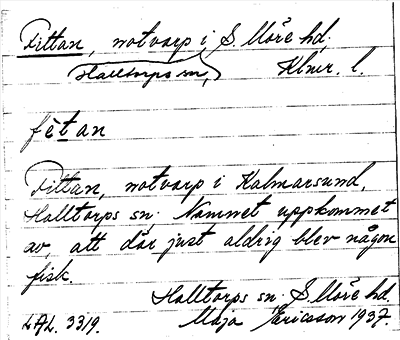 Fittan, notvarp i S. Möre hd.
Halltorps sn, Klmr. l.
fètan
Fittan, notvarp i Kalmarsund,
Halltorps sn. Namnet uppkommet
av, att där just aldrig blev någon
fisk.
Halltorps sn. S. Möre hd.
LAL. 3319. Maja Ericsson 1937.